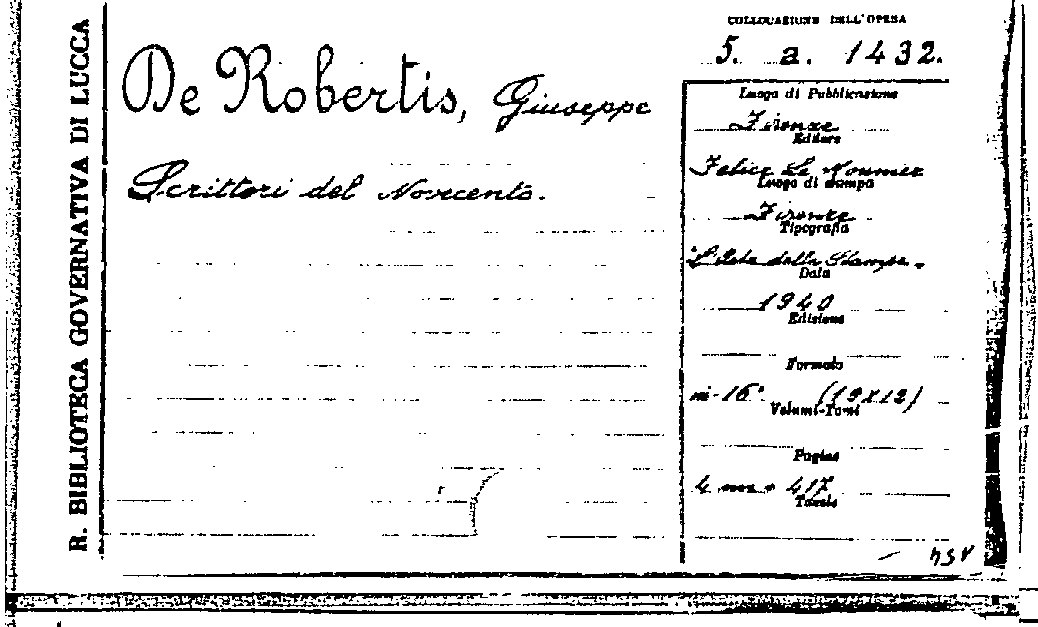 R. BIBLIOTECA GOVERNATIVA DI LUCCA
COLLOCAZIONE DELL'OPERA
5. a. 1432.
De Robertis, Giuseppe
Scrittori del Novecento.
Luogo di Pubblicazione
Firenze
Editore
Felice Le Monnier
Luogo di stampa
Firenze
Tipografia
L'Arte della Stampa.
Data
1940
Edizione
Formato
in-16° (19x12)
Volumi-Tomi
Pagine
4 nn. + 417
Tavole